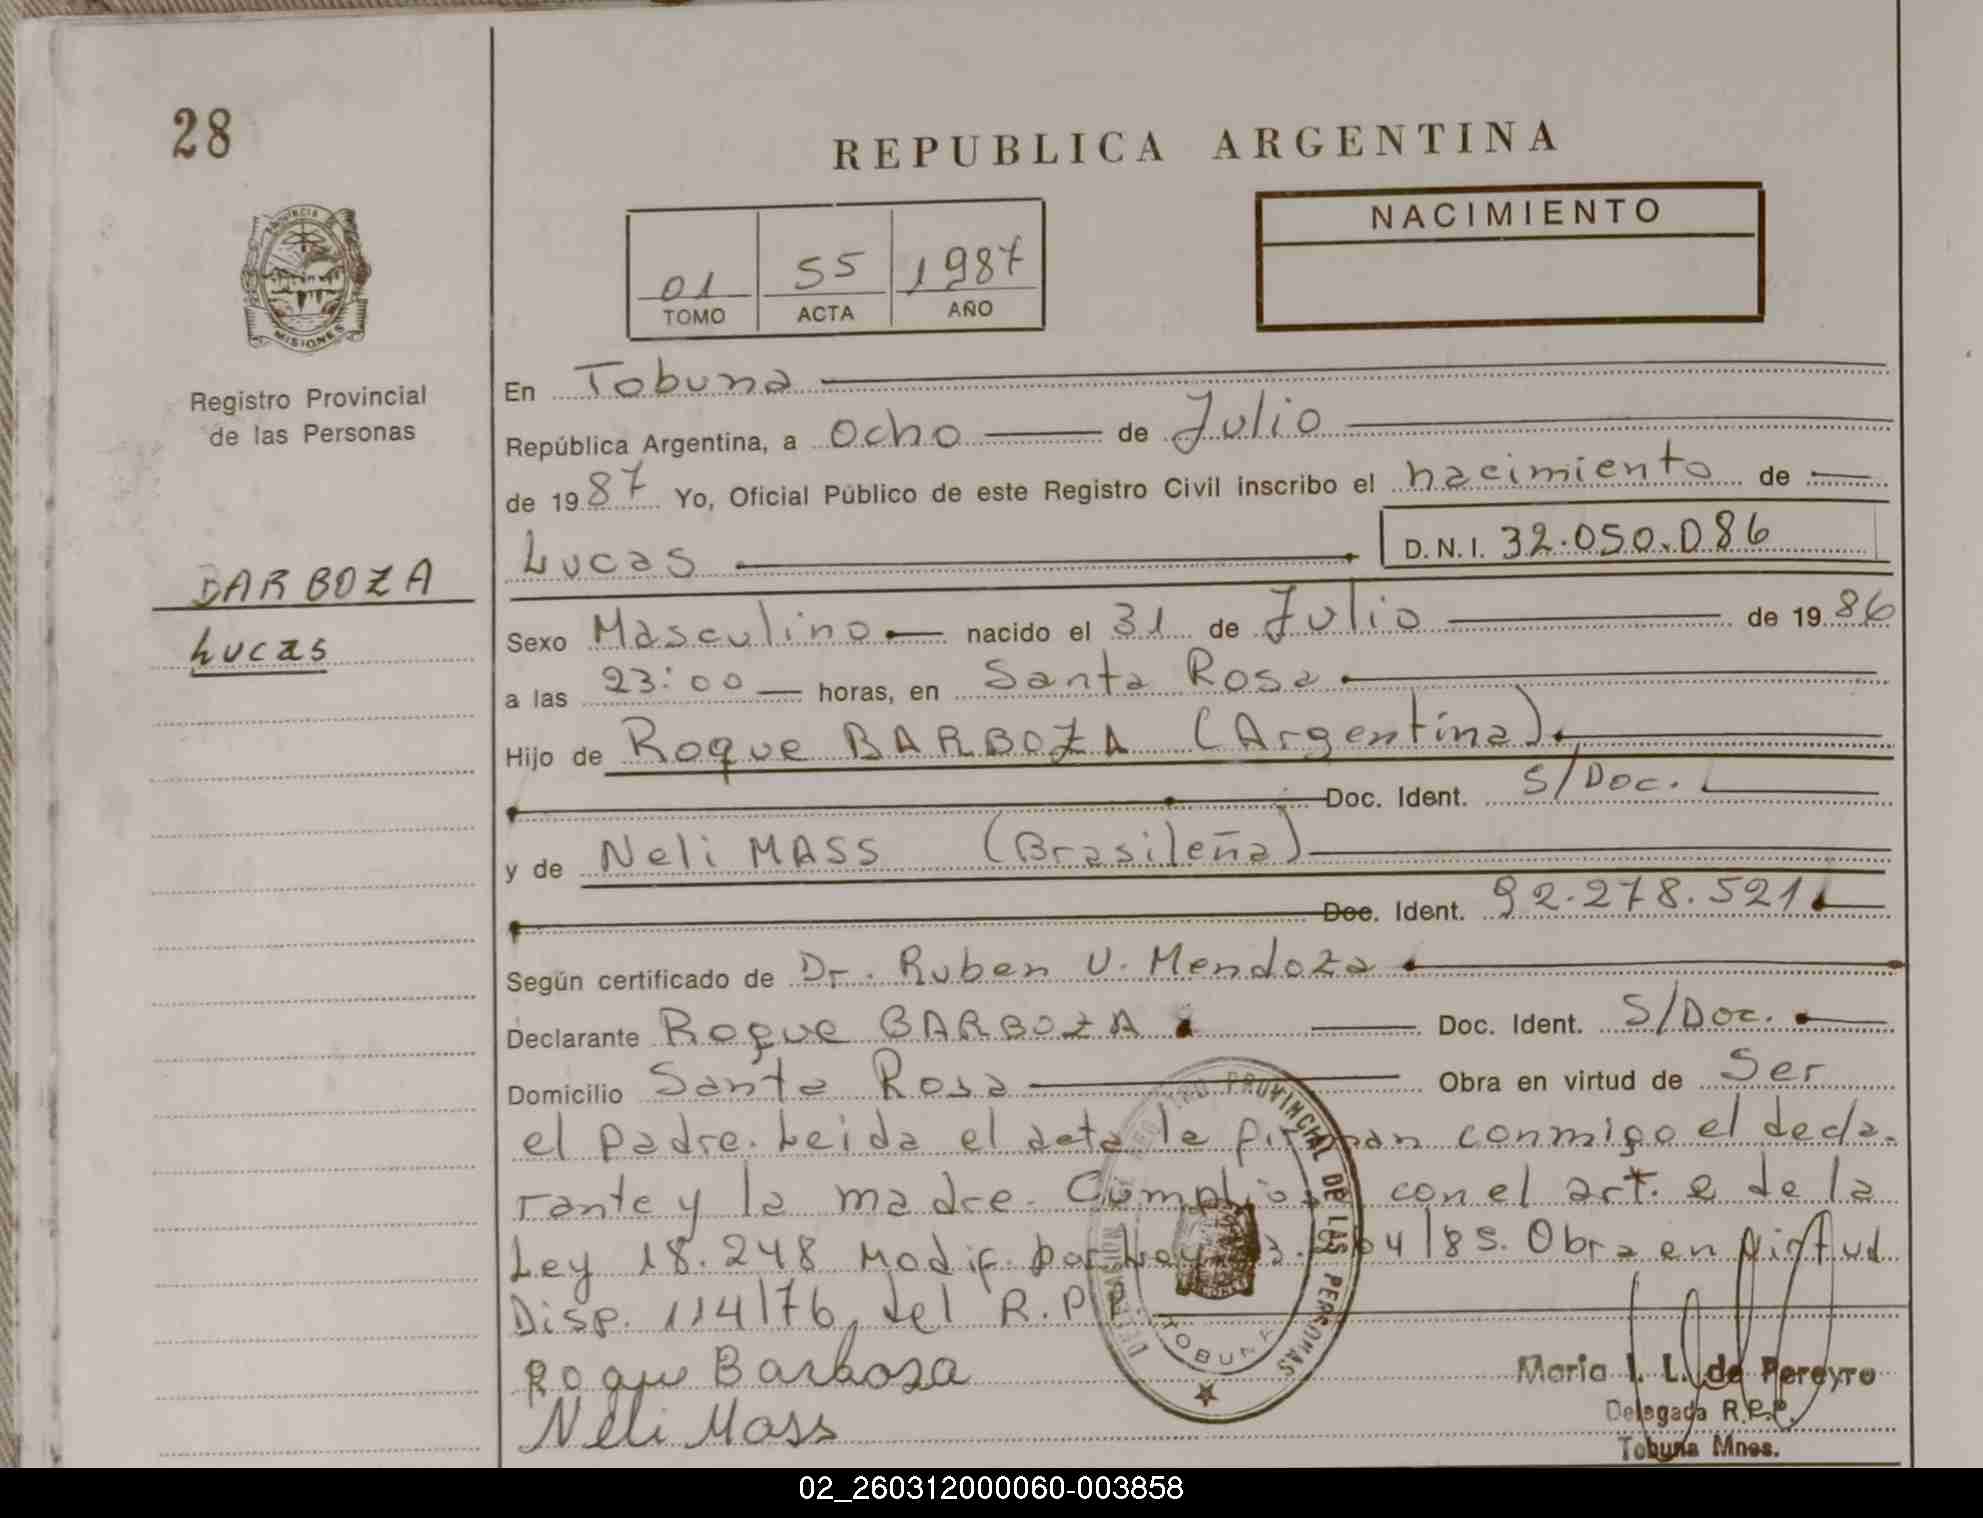 28
REPUBLICA ARGENTINA
NACIMIENTO
01 55 1987
TOMO ACTA AÑO
PROVINCIA
MISIONES
Registro Provincial
de las Personas
BARBOZA
Lucas
En Tobuna
República Argentina, a ocho de Julio
de 1987 Yo, Oficial Público de este Registro Civil inscribo el nacimiento de
Lucas D.N.I. 32.050.086
Sexo Masculino nacido el 31 de Julio de 1986
a las 23:00 horas, en Santa Rosa
Hijo de Roque BARBOZA (Argentina)
Doc. Ident. S/Doc.
y de Neli MASS (Brasileña)
Doc. Ident. 92.278.521
Según certificado de Dr. Ruben U. Mendoza
Declarante Roque BARBOZA Doc. Ident. S/Doc.
Domicilio Santa Rosa Obra en virtud de Ser
el padre. Leida el acta la firman conmigo el decla-
rante y la madre. con el art. de la
Ley 18.248 Modif. por Ley /85. Obra en Virtud
Disp. 114/76, del R.P.P.
REGISTRO PROVINCIAL DE LAS PERSONAS
DELEGACION
TOBUNA
Roque Barboza
Neli Mass
Maria I. L. de Pereyro
Delegada R.P.P.
Tobuna Mnes.
02_260312000060-003858